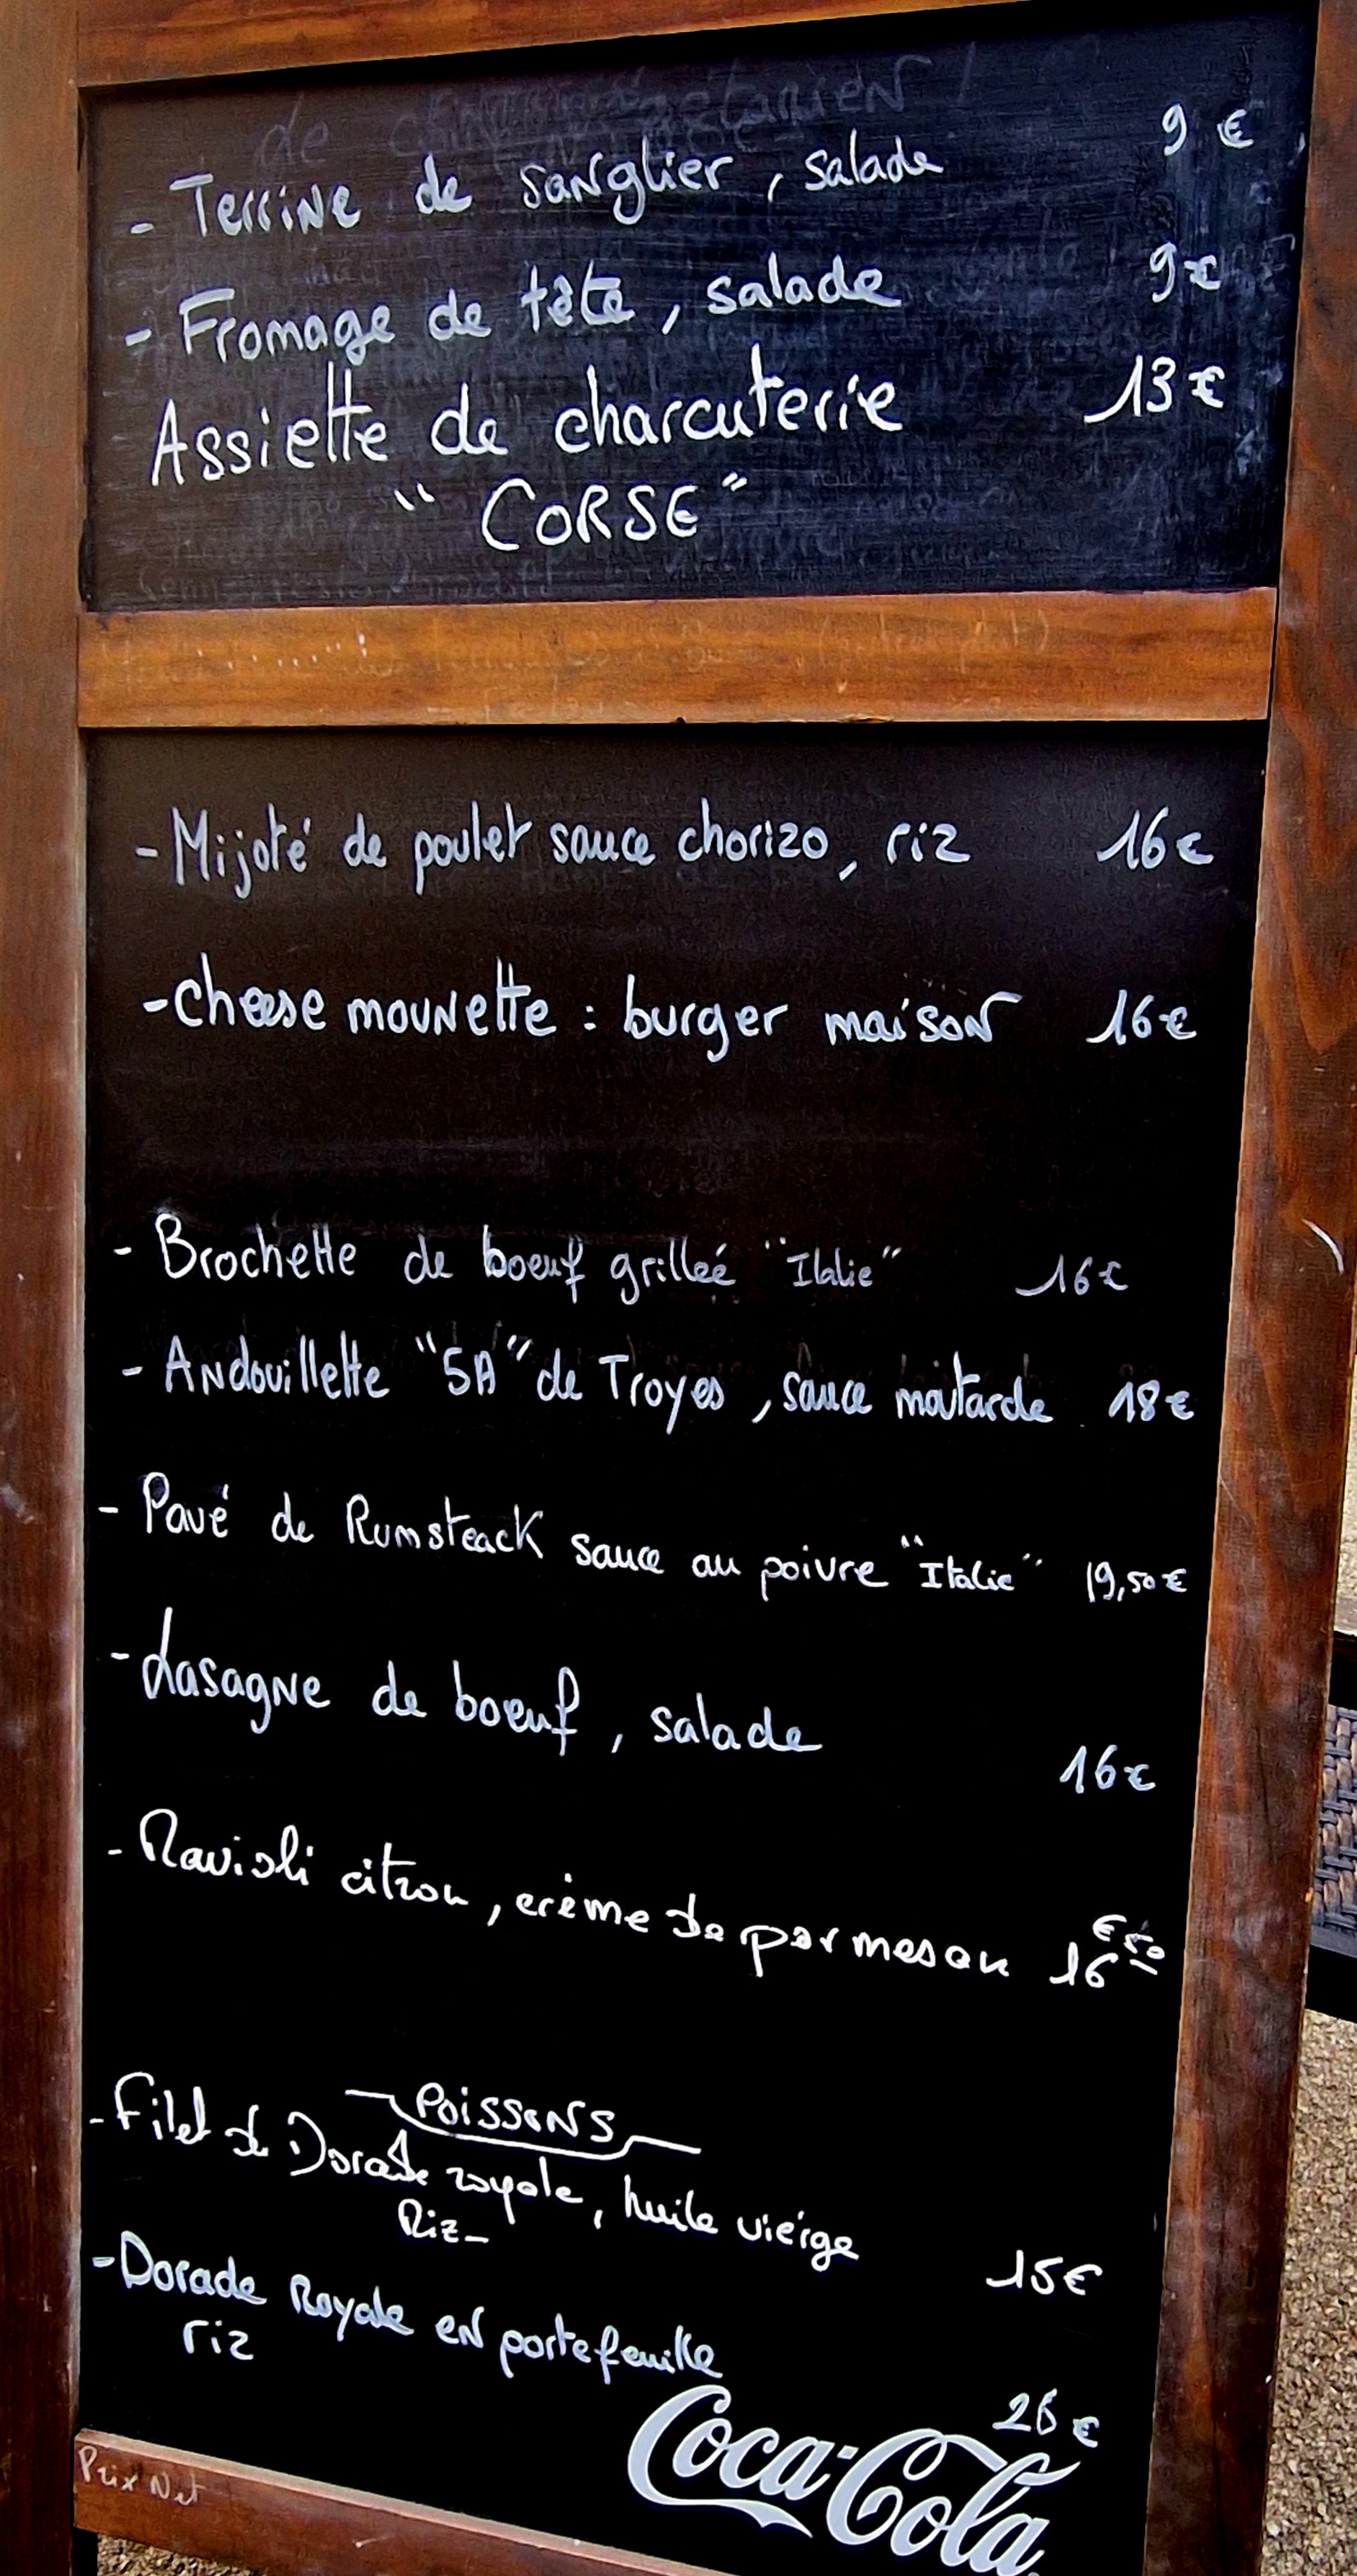 - Terrine de sanglier, salade 9 €
- Fromage de tête, salade 9€
Assiette de charcuterie 13€
"CORSE"
- Mijoté de poulet sauce chorizo, riz 16€
- Cheese mounette : burger maison 16€
- Brochette de boeuf grilleé "Italie" 16€
- Andouillette "5A" de Troyes, sauce moutarde 18€
- Pavé de Rumsteack sauce au poivre "Italie" 19,50€
- Lasagne de boeuf, salade 16€
- Ravioli citron, crème de parmesan 16€50
Poissons
- Filet de Dorade royale, huile vierge 15€
Riz_
- Dorade Royale en portefeuille 26€
riz
Coca-Cola
Prix Net